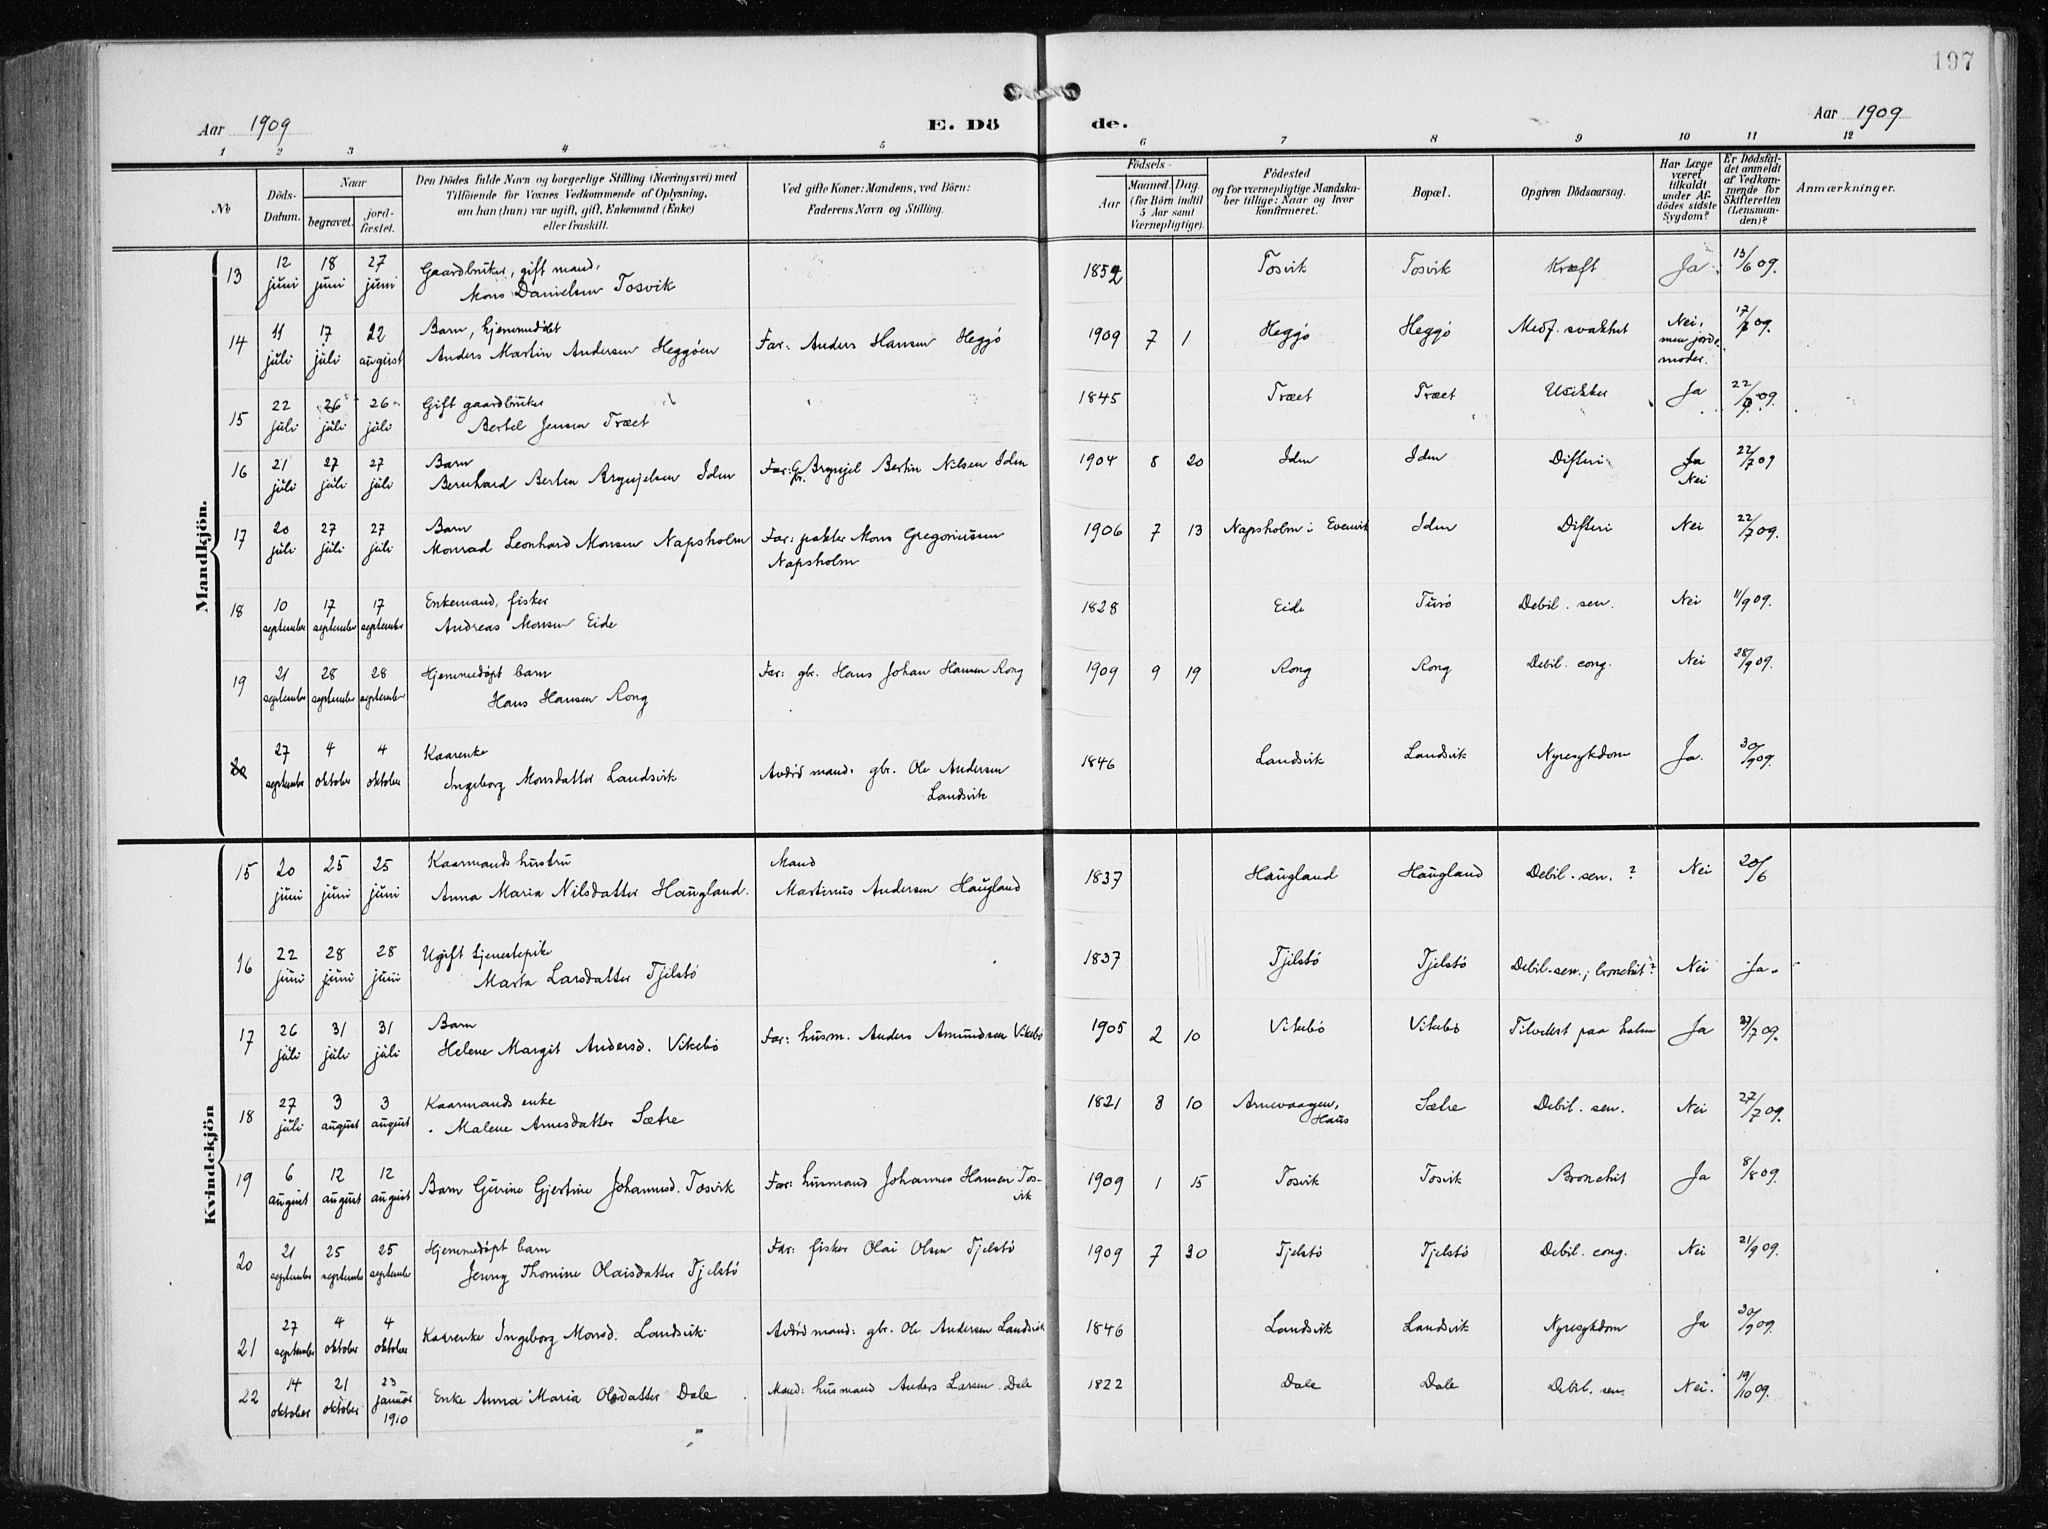 197
Aar 1909
E. Dö
de.
Aar 1909
1 2 3 4 5 6 7 8 9 10 11 12
No
Döds-Datum.
Naar
begravet.
jord-fæstet.
Den Dödes fulde Navn og borgerlige Stilling (Næringsvei) med
Tilföiende for Voxnes Vedkommende af Oplysning,
om han (hun) var ugift, gift, Enkemand (Enke)
eller fraskilt.
Ved gifte Koner: Mandens, ved Börn:
Faderens Navn og Stilling.
Födsels-
Aar
Maaned. Dag.
(for Börn indtil
5 Aar samt
Værnepligtige).
Födested
og for værnepligtige Mandska-
ber tillige: Naar og hvor
konfirmeret.
Bopæl.
Opgiven Dödsaarsag.
Har Læge
været
tilkaldt
under Af-
dödes sidste
Sygdom?
Er Dödsfal-
det anmeldt
af Vedkom-
mende for
Skifteretten
(Lensman-
den)?
Anmærkninger.
Mandkjön.
13 12 juni 18 juni 27 juni Gaardbruker, gift mand,
Mons Danielsen Tosvik 1852 Tosvik Tosvik Kræft Ja 13/6 09.
14 11 juli 17 juli 22 august Barn, hjemmedøbt
Anders Martin Andersen Heggøen Far: Anders Hansen Heggø 1909 7 1 Heggø Heggø Medf. svakhet Nei, men jordemoder. 17/7 09.
15 22 juli 26 juli 26 juli Gift gaardbruker
Bertel Jensen Træet 1845 Træet Træet Usikker Ja 22/7 09.
16 21 juli 27 juli 27 juli Barn
Bernhard Berten Brynjelsen Iden Far: Gbr. Brynjel Bertin Nilsen Iden 1904 8 20 Iden Iden Difteri Ja Nei 22/7 09
17 20 juli 27 juli 27 juli Barn
Monrad Leonhard Monsen Napsholm Far: pakter Mons Gregoriussen
Napsholm 1906 7 13 Napsholm i Evenvik Iden Difteri Nei 22/7 09.
18 10 september 17 september 17 september Enkemand, fisker
Andreas Monsen Eide 1828 Eide Turø Debil. sen. Nei 11/9 09.
19 21 september 28 september 28 september Hjemmedøpt barn
Hans Hansen Rong Far: gbr. Hans Johan Hansen Rong 1909 9 19 Rong Rong Debil. cong. Nei 28/9 09.
20 27 september 4 oktober 4 oktober Kaarenke
Ingeborg Monsdatter Landsvik Avdød mand: gbr. Ole Andersen
Landsvik 1846 Landsvik Landsvik Nyresykdom Ja. 30/9 09.
Kvindekjön
15 20 juni 25 juni 25 juni Kaarmands hustru
Anna Maria Nilsdatter Haugland. Mand
Martinus Andersen Haugland 1837 Haugland Haugland Debil. sen. ? Nei 20/6
16 22 juni 28 juni 28 juni Ugift tjenestepike
Marta Larsdatter Tjelstø 1837 Tjelstø Tjelstø Debil. sen.; bronchit? Nei Ja.
17 26 juli 31 juli 31 juli Barn
Helene Margit Andersd. Vikebø Far: husm. Anders Amundsen Vikebø 1905 2 10 Vikebø Vikebø Tilvekst paa halsen Ja 27/7 09.
18 27 juli 3 august 3 august Kaarmands enke
Malene Arnesdatter Sætre 1821 8 10 Arnevaagen, Haus Sætre Debil. sen. Nei 27/7 09.
19 6 august 12 august 12 august Barn Gurine Gjertine Johannesd. Tosvik Far: husmand Johannes Hansen Tos-
vik 1909 1 15 Tosvik Tosvik Bronchit Ja 8/8 09.
20 21 september 25 september 25 september Hjemmedøpt barn
Jenny Thomine Olaisdatter Tjelstø Far: fisker Olai Olsen Tjelstø 1909 7 30 Tjelstø Tjelstø Debil. cong. Nei 21/9 09.
21 27 september 4 oktober 4 oktober Kaarenke Ingeborg Monsd. Landsvik Avdød mand: gbr. Ole Andersen Landsvik 1846 Landsvik Landsvik Nyresykdom Ja 30/9 09.
22 14 oktober 21 oktober 23 januar 1910 Enke Anna Maria Olsdatter Dale Mand: husmand Anders Larsen Dale 1822 Dale Dale Debil. sen. Nei. 19/10 09.